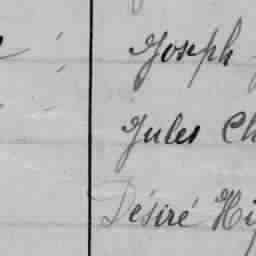 Joseph
Jules
Désiré